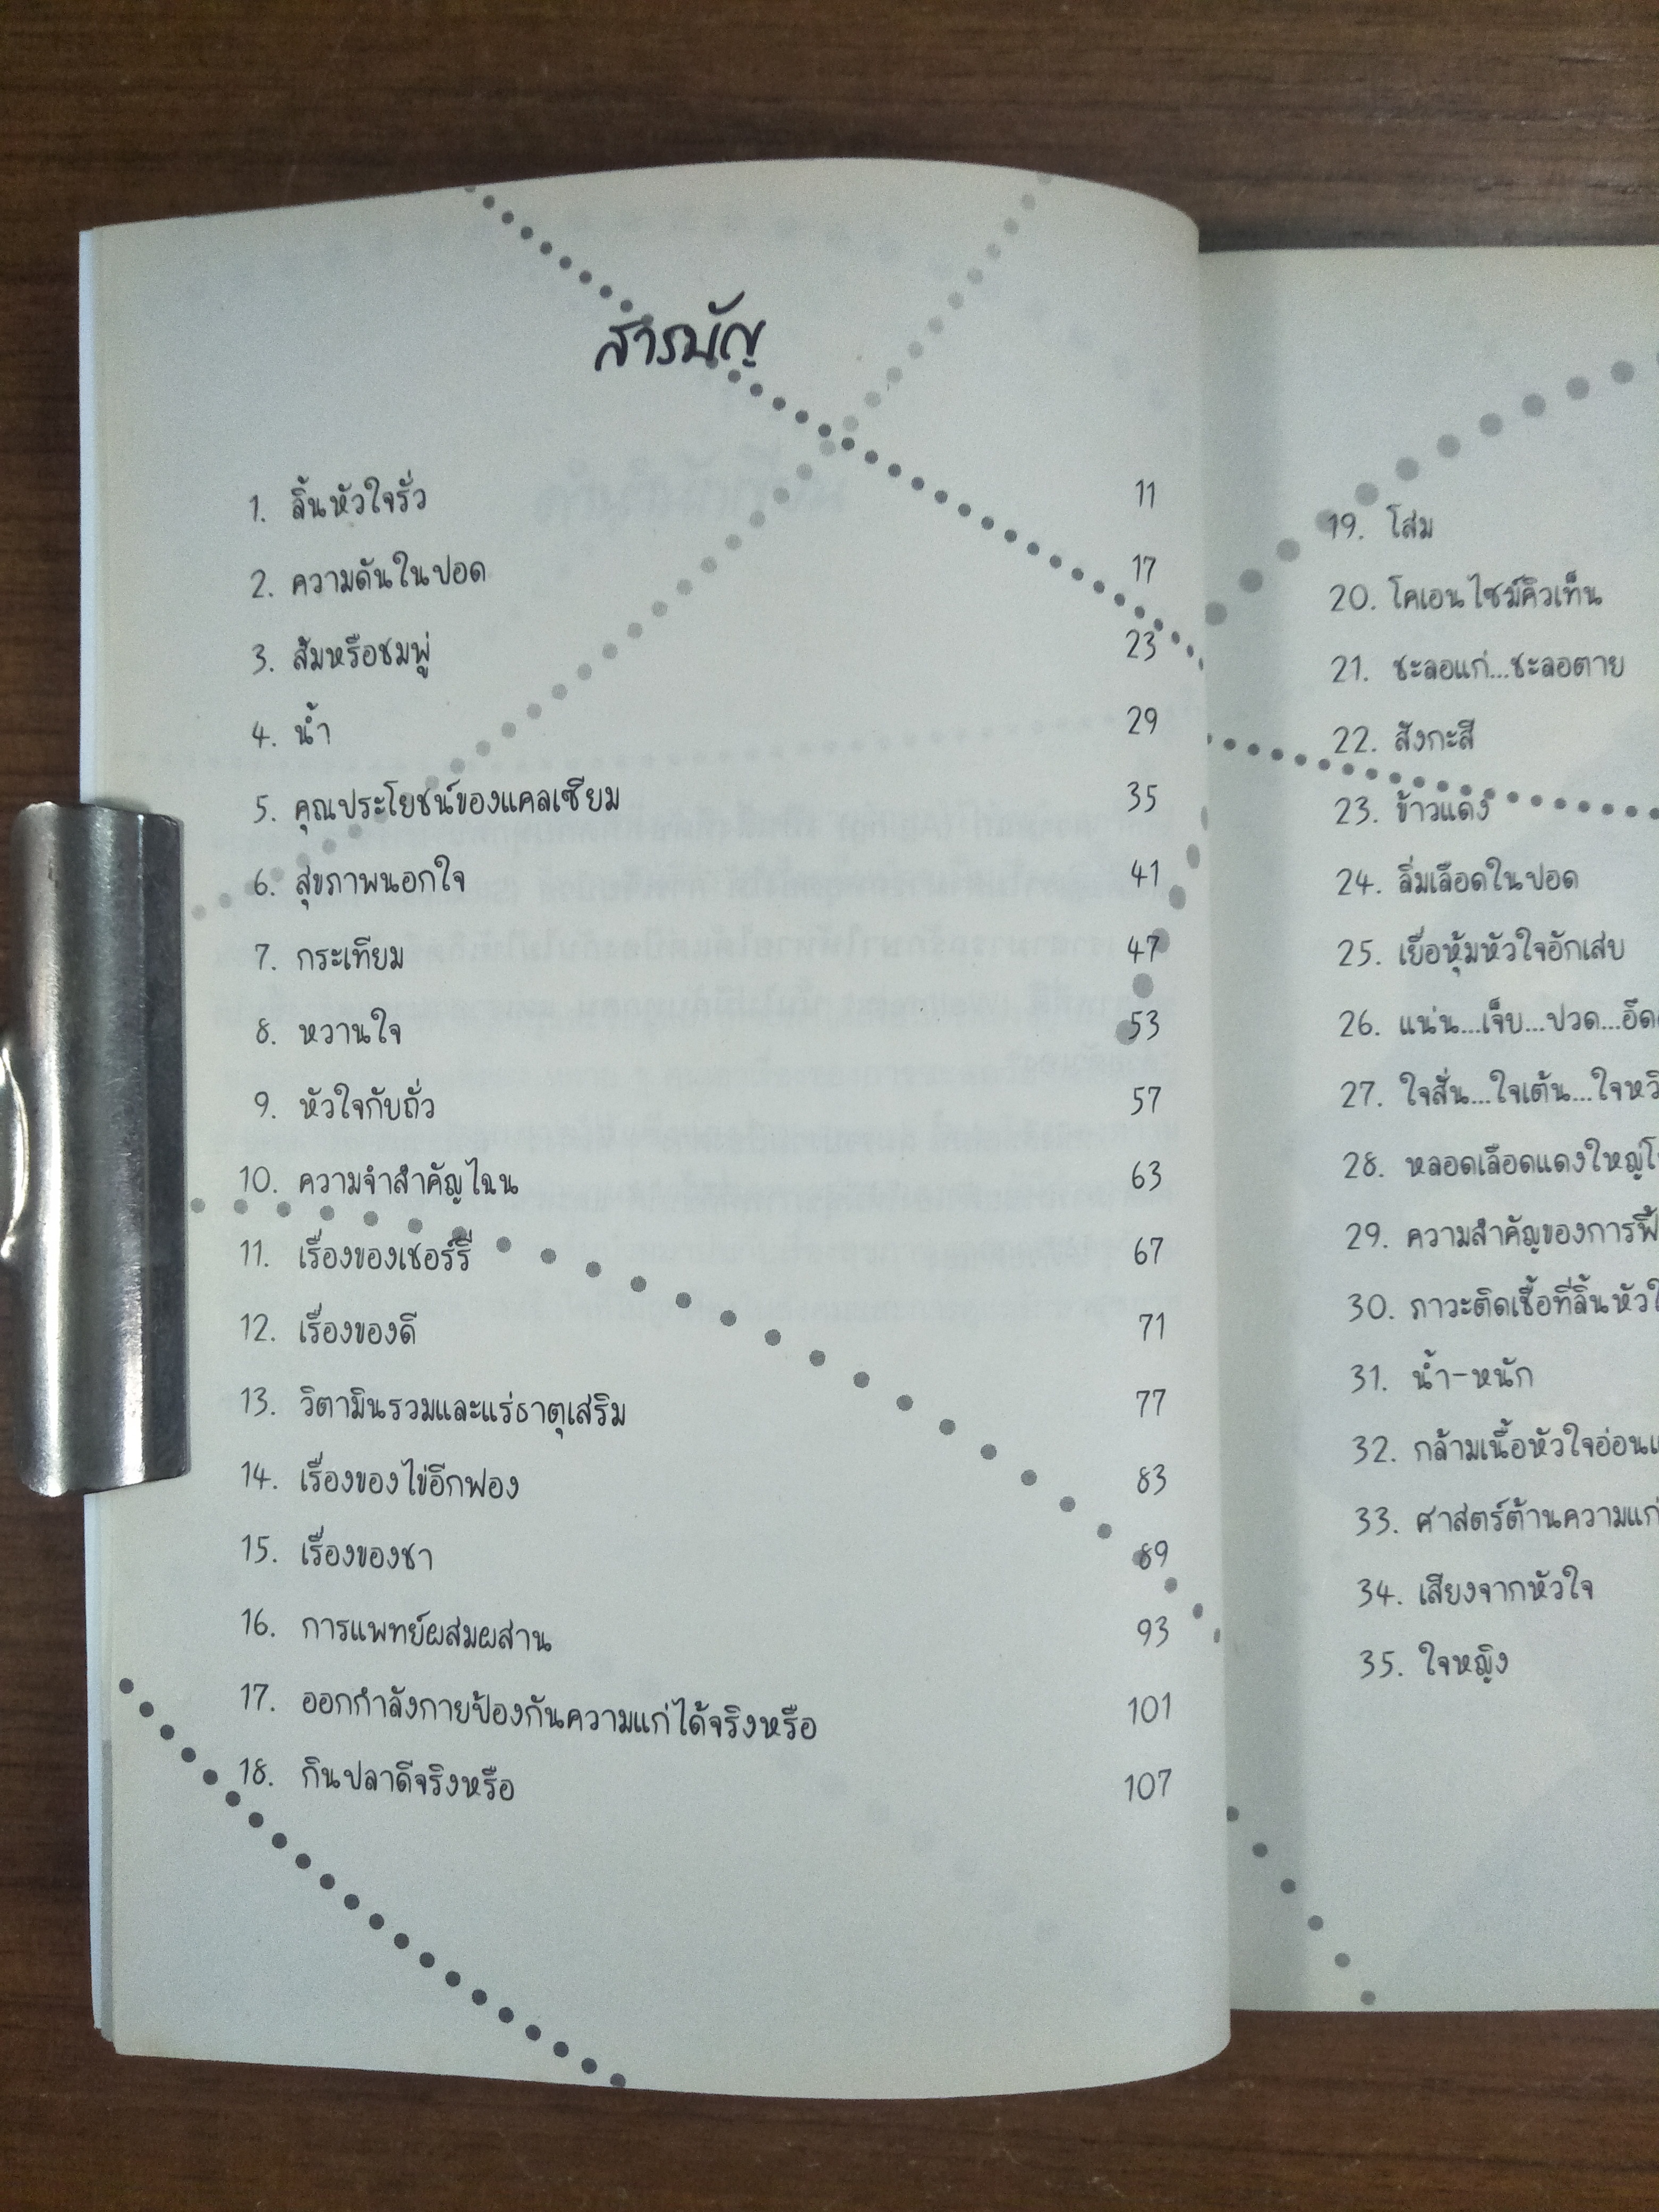 สารบัญ
1. ลิ้นหัวใจรั่ว 11
2. ความดันในปอด 17
3. ส้มหรือชมพู่ 23
4. น้ำ 29
5. คุณประโยชน์ของแคลเซียม 35
6. สุขภาพนอกใจ 41
7. กระเทียม 47
8. หวานใจ 53
9. หัวใจกับถั่ว 57
10. ความจำสำคัญไฉน 63
11. เรื่องของเชอร์รี่ 67
12. เรื่องของดี 71
13. วิตามินรวมและแร่ธาตุเสริม 77
14. เรื่องของไข่อีกฟอง 83
15. เรื่องของชา 89
16. การแพทย์ผสมผสาน 93
17. ออกกำลังกายป้องกันความแก่ได้จริงหรือ 101
18. กินปลาดีจริงหรือ 107
19. โสม
20. โคเอนไซม์คิวเท็น
21. ชะลอแก่...ชะลอตาย
22. สังกะสี
23. ข้าวแดง
24. ลิ่มเลือดในปอด
25. เยื่อหุ้มหัวใจอักเสบ
26. แน่น...เจ็บ...ปวด...อึด
27. ใจสั่น...ใจเต้น...ใจหวิ
28. หลอดเลือดแดงใหญ่
29. ความสำคัญของการฟื้
30. ภาวะติดเชื้อที่ลิ้นหัวใ
31. น้ำ-หนัก
32. กล้ามเนื้อหัวใจอ่อน
33. ศาสตร์ต้านความแก่
34. เสียงจากหัวใจ
35. ใจหญิง